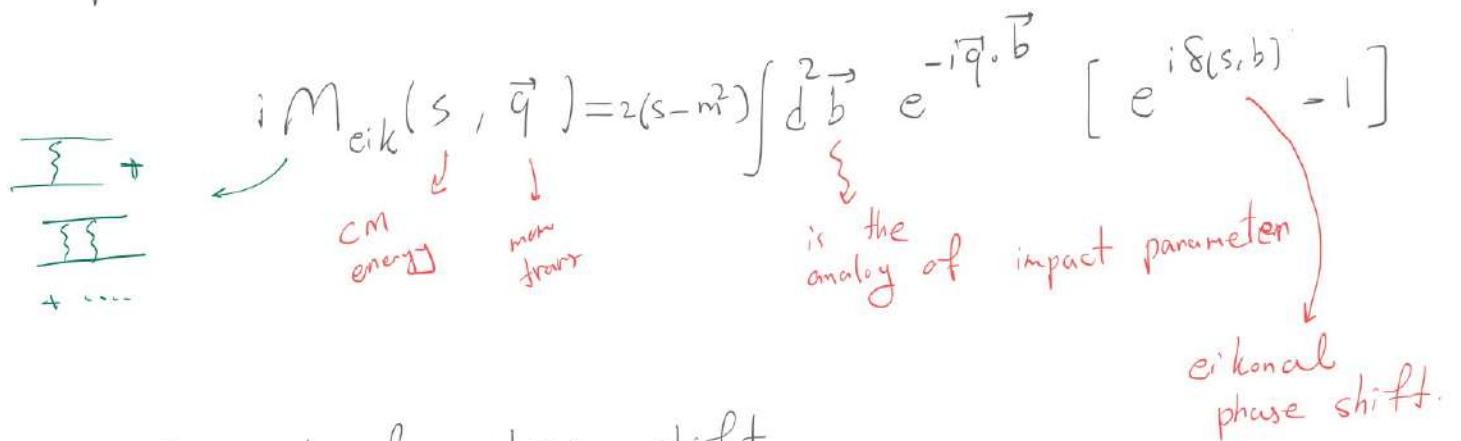 i M_eik (s, q⃗) = 2(s-m²) ∫ d²b⃗ e^{-iq⃗.b⃗} [e^{iδ(s,b)} - 1]
+
+ ....
CM energy
mom trans
is the analog of impact parameter
eikonal phase shift.
phase shift